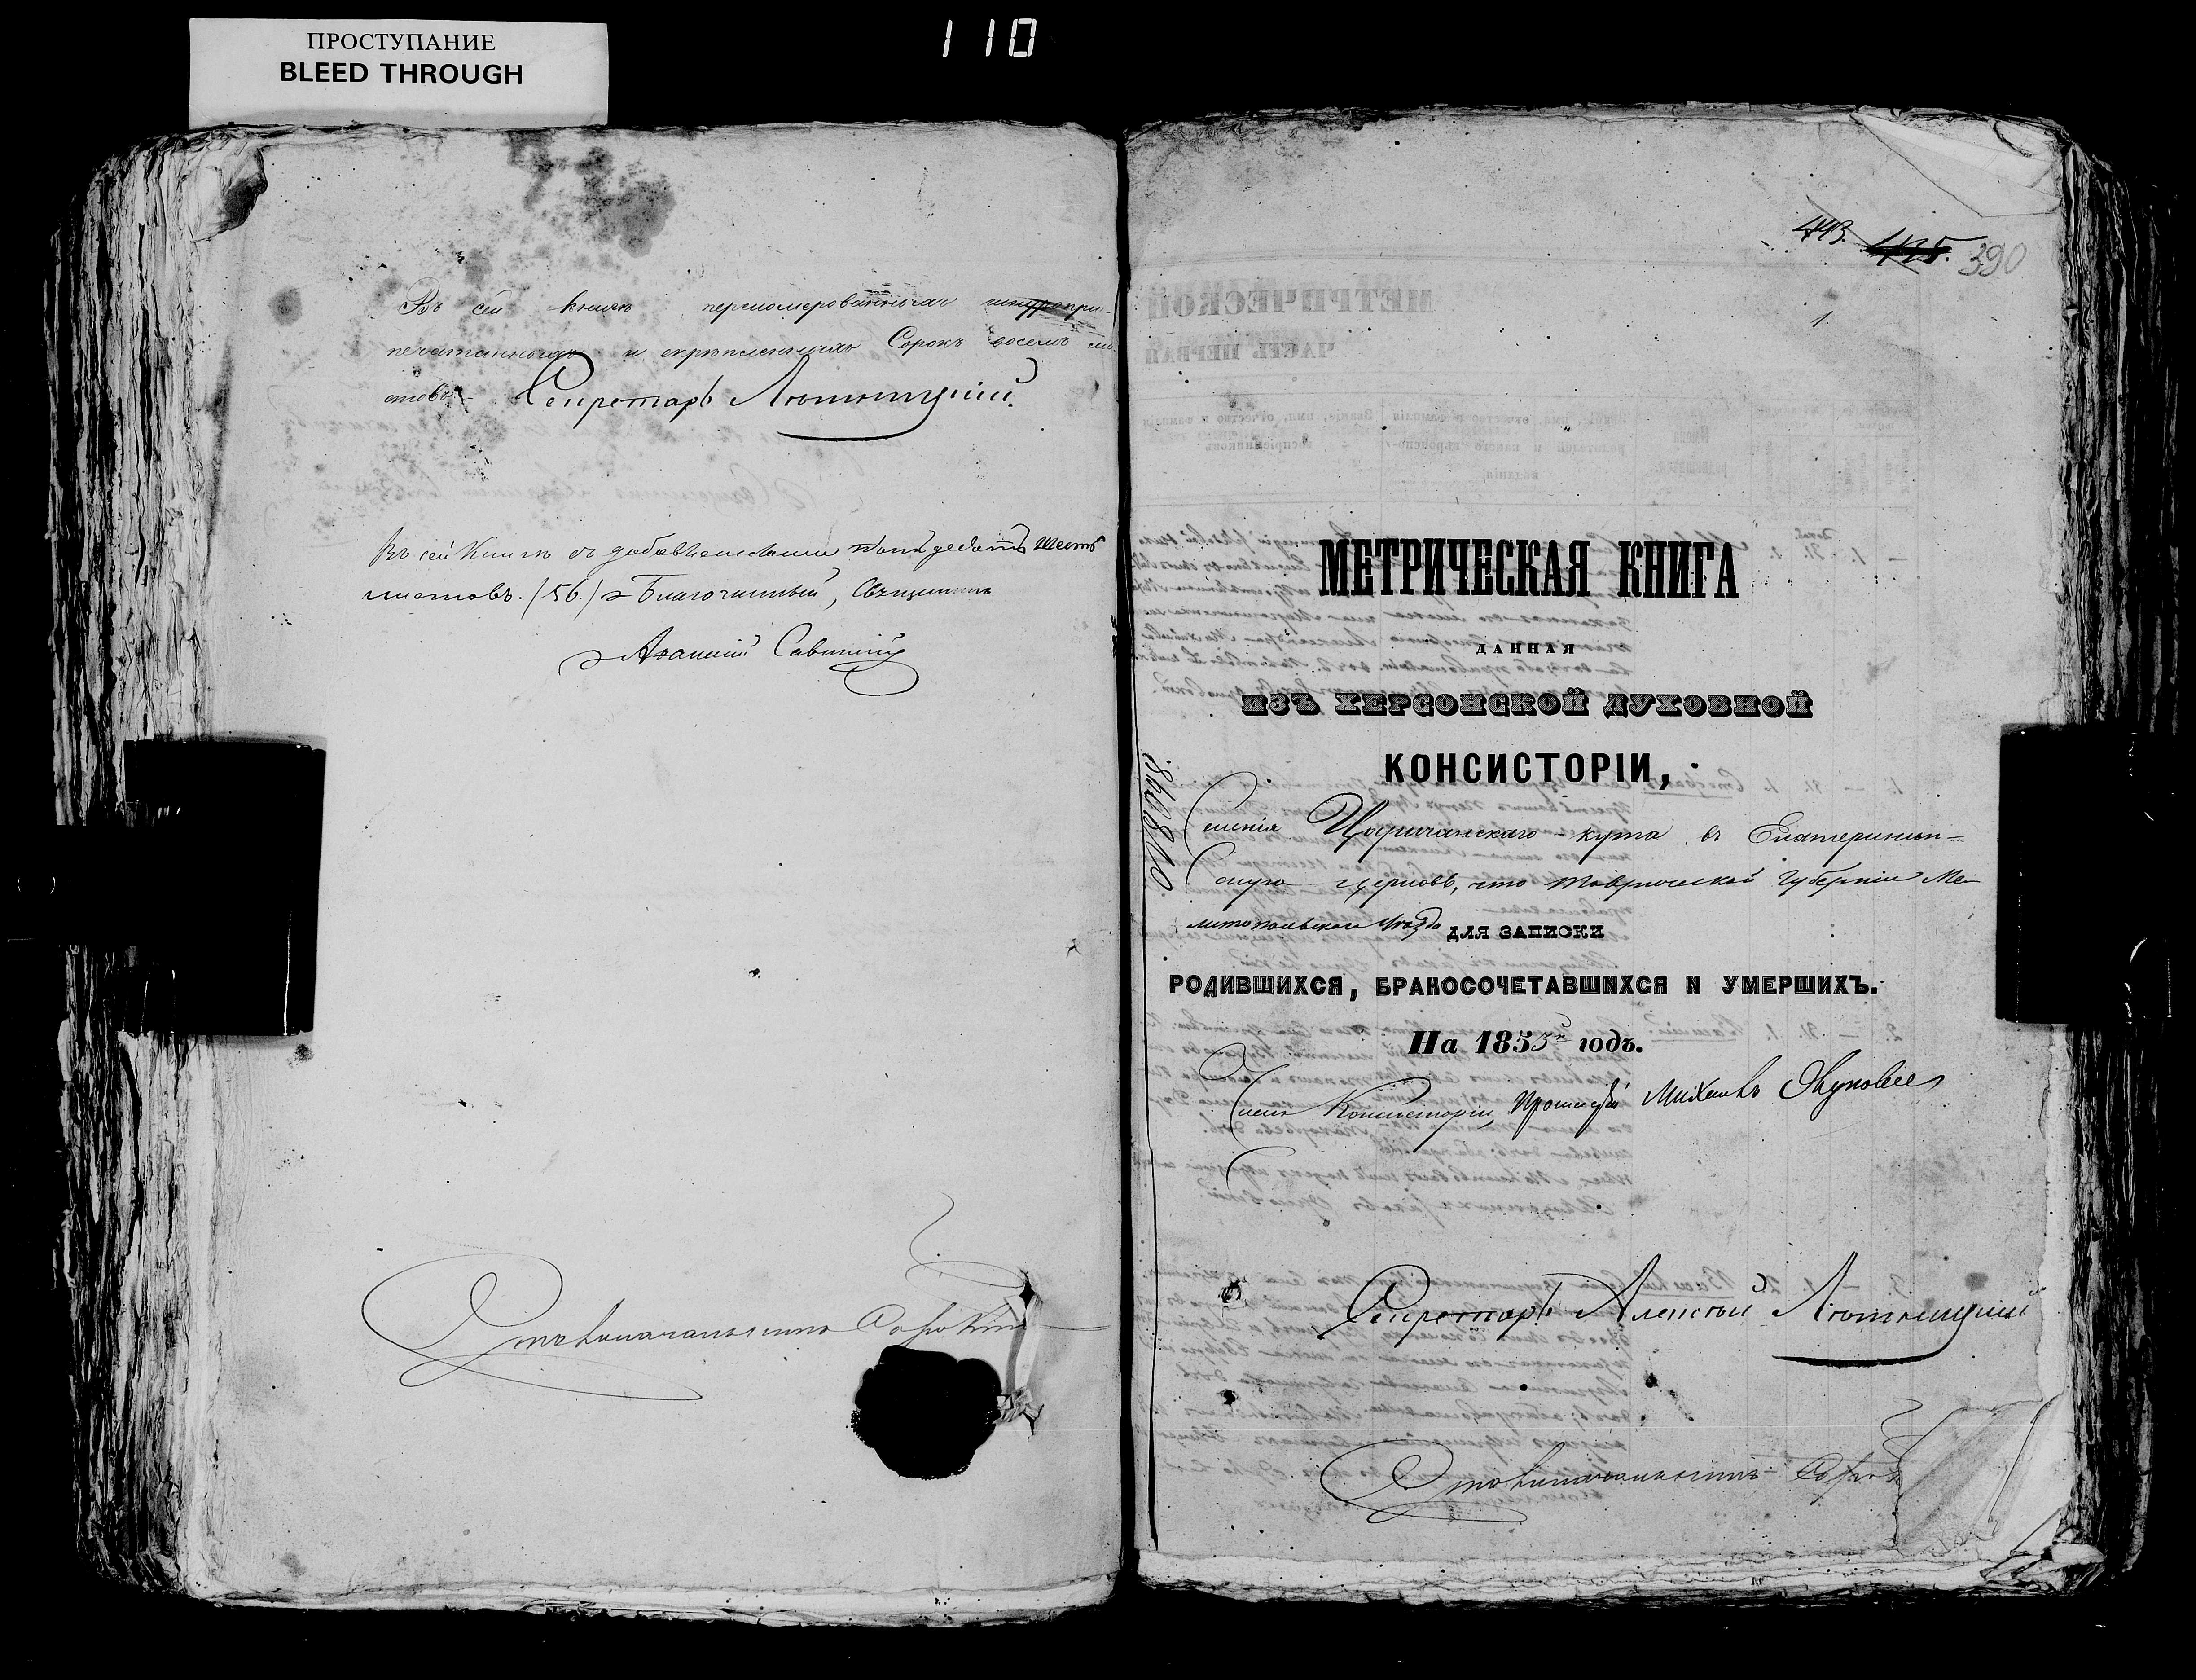 ПРОСТУПАНИЕ
BLEED THROUGH
110
Въ сей книгѣ перномерованныхъ шнуропри-
печатанныхъ и скрѣпленныхъ Сорокъ восемь ли-
стовъ. Секретарь
Въ сей Книгѣ съ добавленными пятьдесятъ шесть
листовъ. (56.) Благочинный, Священникъ
Савицкій
Столоначальникъ
443. 475. 390
1.
МЕТРИЧЕСКАЯ КНИГА
ДАННАЯ
ИЗЪ ХЕРСОНСКОЙ ДУХОВНОЙ
КОНСИСТОРІИ,
Селенія Царичанскаго-кута въ Екатеринин-
скую церковь, что Таврической Губерніи Ме-
литопольскаго уѣзда ДЛЯ ЗАПИСКИ
РОДИВШИХСЯ, БРАКОСОЧЕТАВШИХСЯ И УМЕРШИХЪ.
На 1855й годъ.
Членъ Консисторіи, Протоіерей Михаилъ
Секретарь Алексѣй
Столоначальникъ